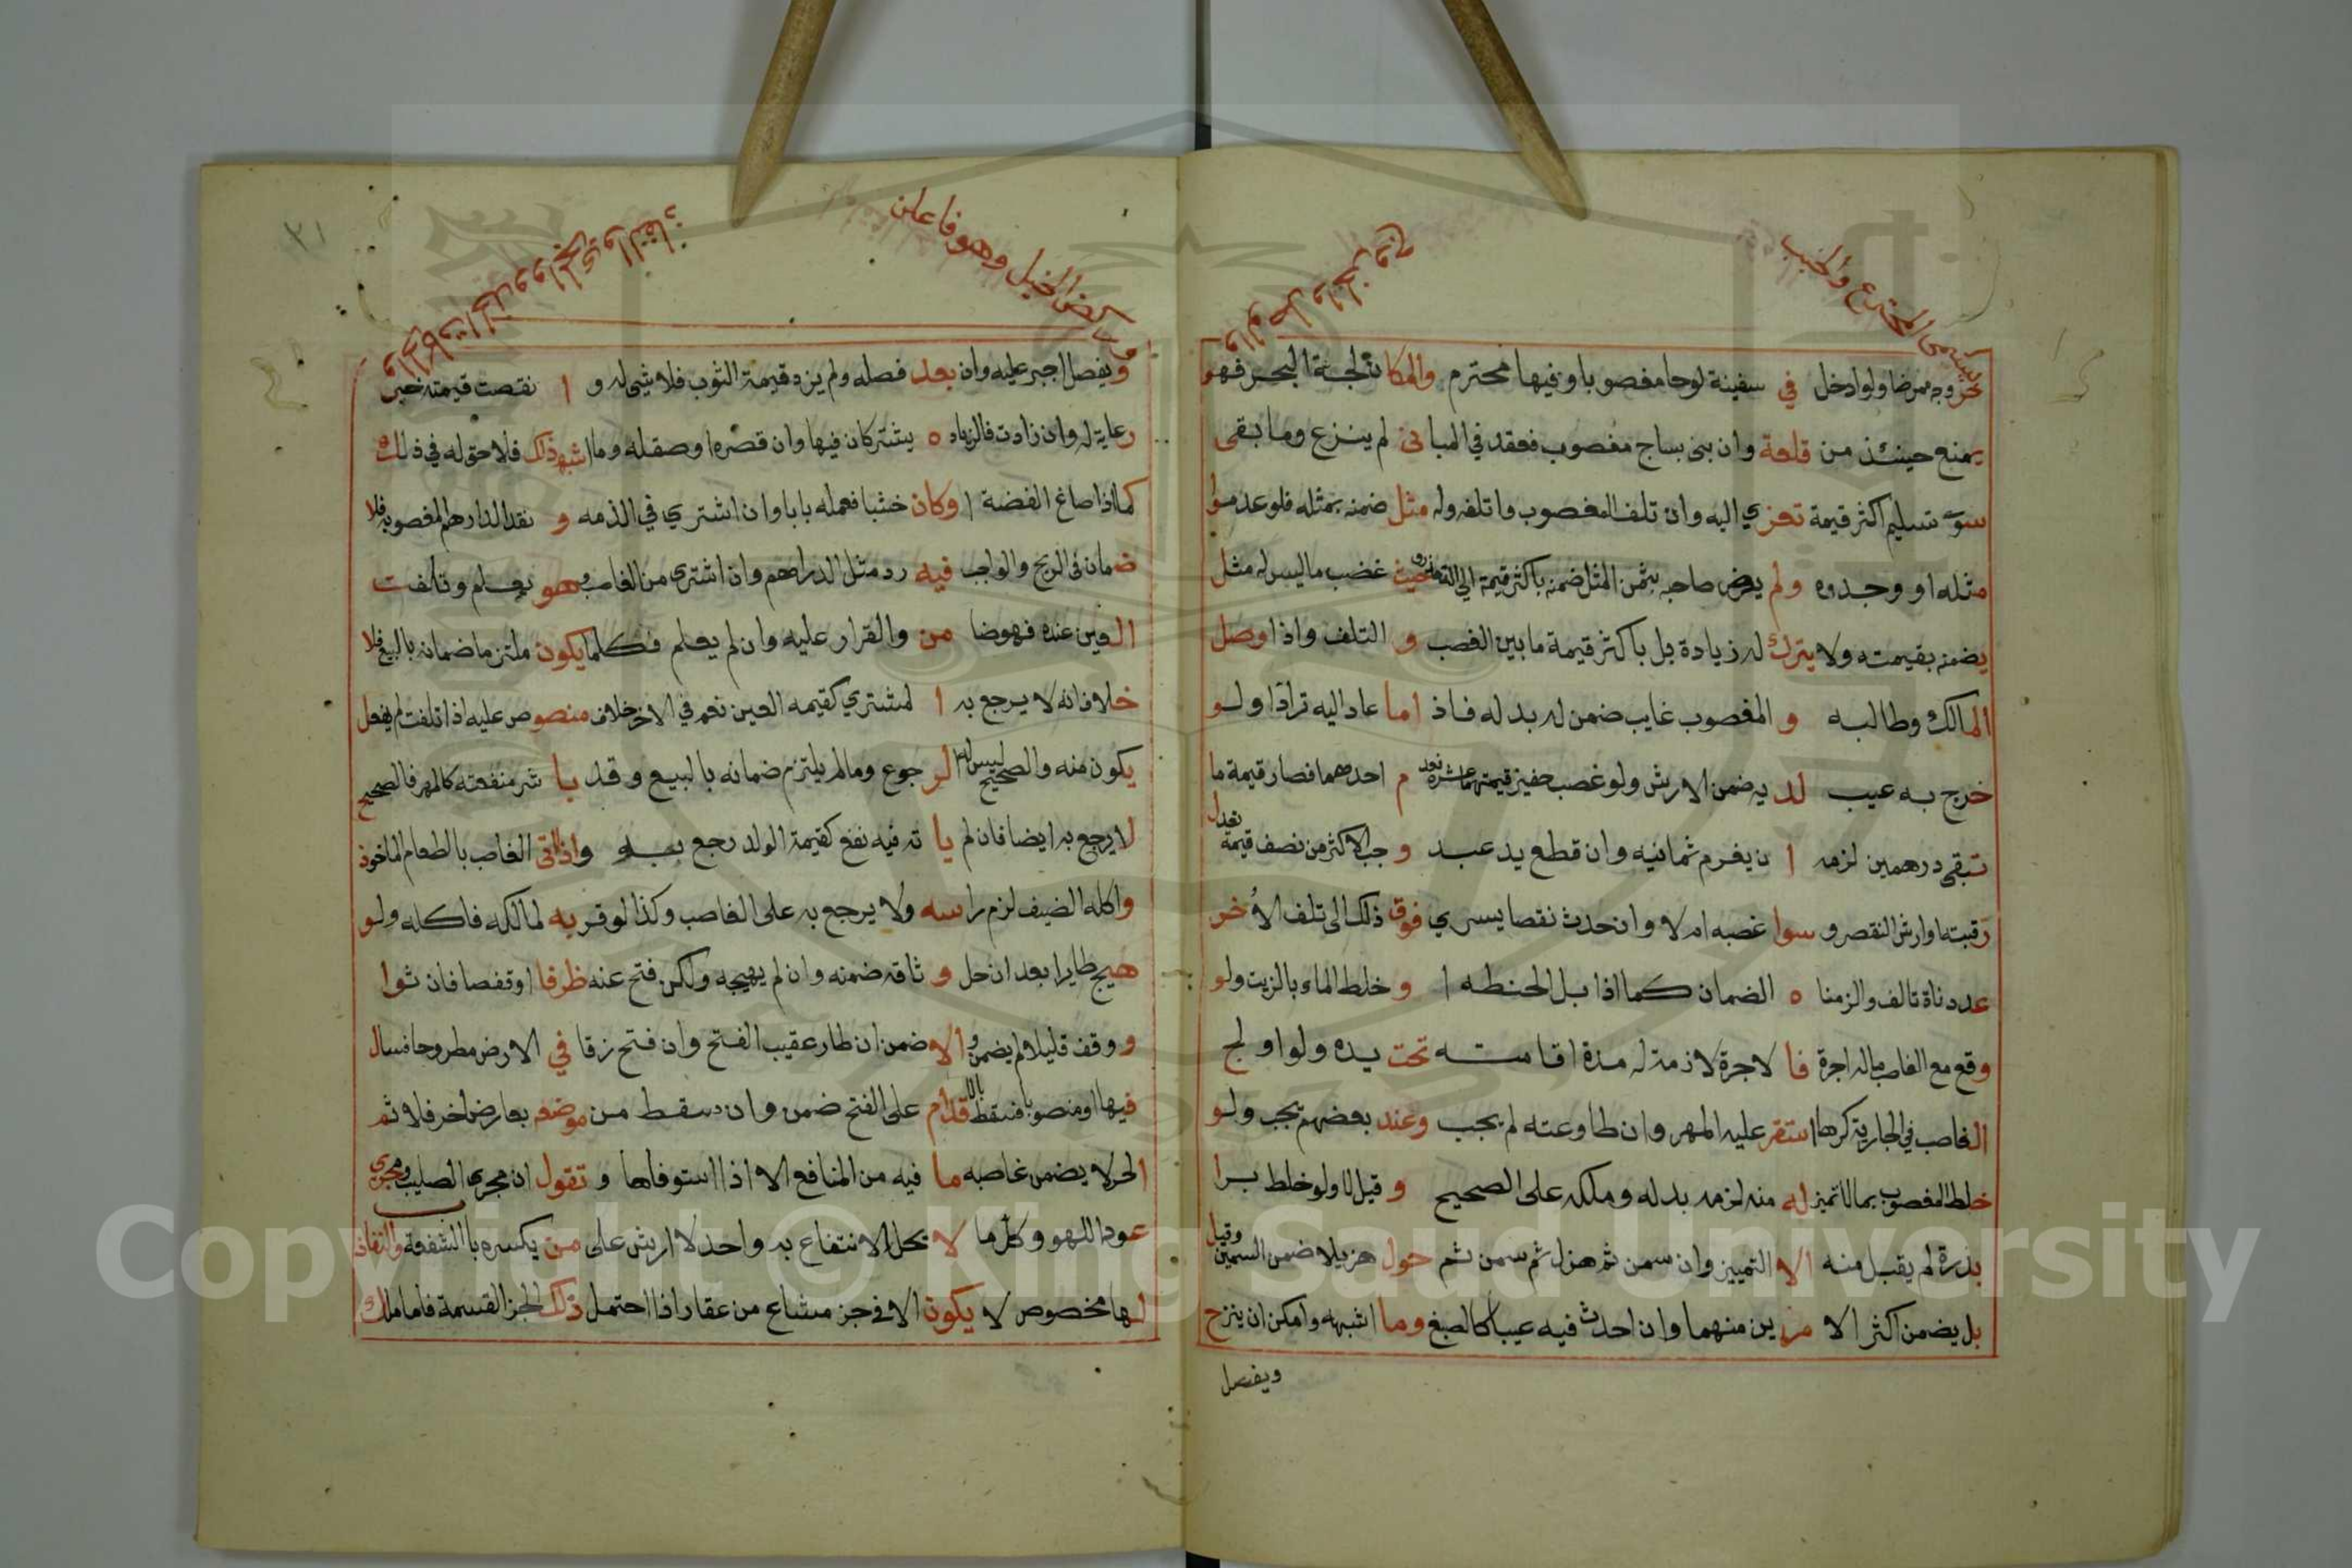 يسمى المخترع والخبب
خروجه مرضا ولو ادخل في سفينة لوحا مغصوبا وفيها محترم والمكان لجة البحر فهو
يمنع حينئذ من قلعة وان بنى بساج مغصوب فعقد في المباني لم ينزع وما بقى
سوى تسليم اكثر قيمة تعزي اليه وان تلف المغصوب واتلفه وله مثل ضمنه بمثله فلو عدموا
مثله او وجدوه ولم يرض صاحبه بثمن المثل ضمنه باكثر قيمة الى التعذر وحيث غضب ماليس له مثل
يضمنه بقيمته ولا يترك له زيادة بل باكثر قيمة ما بين الغصب و التلف واذا وصل
المالك وطالبه و المغصوب غايب ضمن له بدله فاذ اما عاد اليه ترادا ولو
خرج به عيب لديه ضمن الارش ولو غصب خفين قيمتهما عشرة فعدم احدهما فصار قيمة ما
تبقى درهمين لزمه ان يغرم ثمانيه وان قطع يد عبد وجب الاكثر من نصف قيمة
رقبته او ارش النقص و سوا غصبه ام لا وان حدث نقصا يسري فوق ذلك الى تلف الاخر
عددناه تالف والزمناه الضمان كما اذا بل الحنطه ا و خلط الماء بالزيت ولو
وقع مع الغاصب ماله اجرة فالاجرة لازمة له مدة اقامته تحت يده ولو اولج
الغاصب في الجارية كرها استقر عليه المهر وان طاوعته لم يجب وعند بعضهم يجب ولو
خلط المغصوب بما لا تميز له منه لزمه بدله وملكه على الصحيح و قيل لا ولو خلط برا
بذرة لم يقبل منه الا التمييز وان سمن ثم هزل ثم سمن ثم حول هزيلا ضمن السمين وقيل
بل يضمن اكثر الا مرين منهما وان احدث فيه عيبا كالصبغ وما اشبهه وامكن ان ينزح
ويفصل
وركض الخيل وهو فاعلن
٣١
ويفصل اجبر عليه وان بعد فصله ولم يزد قيمة الثوب فلا شيء له و ا نقصت قيمته خبر
رعاية له وان زادت فالزياده يشتركان فيها وان قصره ا وصقله وما اشبه ذلك فلا حق له في ذلك
كما اذا صاغ الفضة ا وكان خشبا فعمله بابا وان اشتري في الذمه و نقد الدارهم المغصوبه فلا
ضمان في الربح والواجب فيه رد مثل الدراهم وان اشترى من الغاصب وهو يعلم وتلفت
العين عنده فهو ضا من والقرار عليه وان لم يعلم فكلما يكون ملتزما ضمانه بالبيع فلا
خلاف انه لا يرجع به ا لمشتري كقيمه العين نعم في الاخر خلاف منصوص عليه اذا تلفت لم يفعل
يكون منه والصحيح ليس له الرجوع وما لم يلتزم ضمانه بالبيع وقد با شر منفعته كالمهر فالصحيح
لا يرجع به ايضا فان لم يا ته فيه نفع كقيمة الولد رجع به واذا اتى الغاصب بالطعام الماخوذ
واكله الضيف لزم راسه ولا يرجع به على الغاصب وكذا لو قربه لمالكه فاكله ولو
هيج طايرا بعد ان حل و ثاقه ضمنه وان لم يهيجه ولكن فتح عنه ظرفا او قفصا فان ثوا
ووقف قليلا لم يضمن و الا ضمن ان طار عقيب الفتح وان فتح زقا في الارض مطروحا فسال
فيها او منصوبا فسقط بالا قدام على الفتح ضمن وان سقط من موضعه بعارض اخر فلا ثم
الحر لا يضمن غاصبه ما فيه من المنافع الا اذا استوفاها و تقول ان مجرى الصليب ومجرى
عود اللهو وكل ما لا يحل الانتفاع به واحد لا ارش على من يكسره باب الشفعة والنفاذ
لها مخصوص لا يكون الا في جز مشاع من عقار اذا احتمل ذلك الجز القسمة فاما ملك